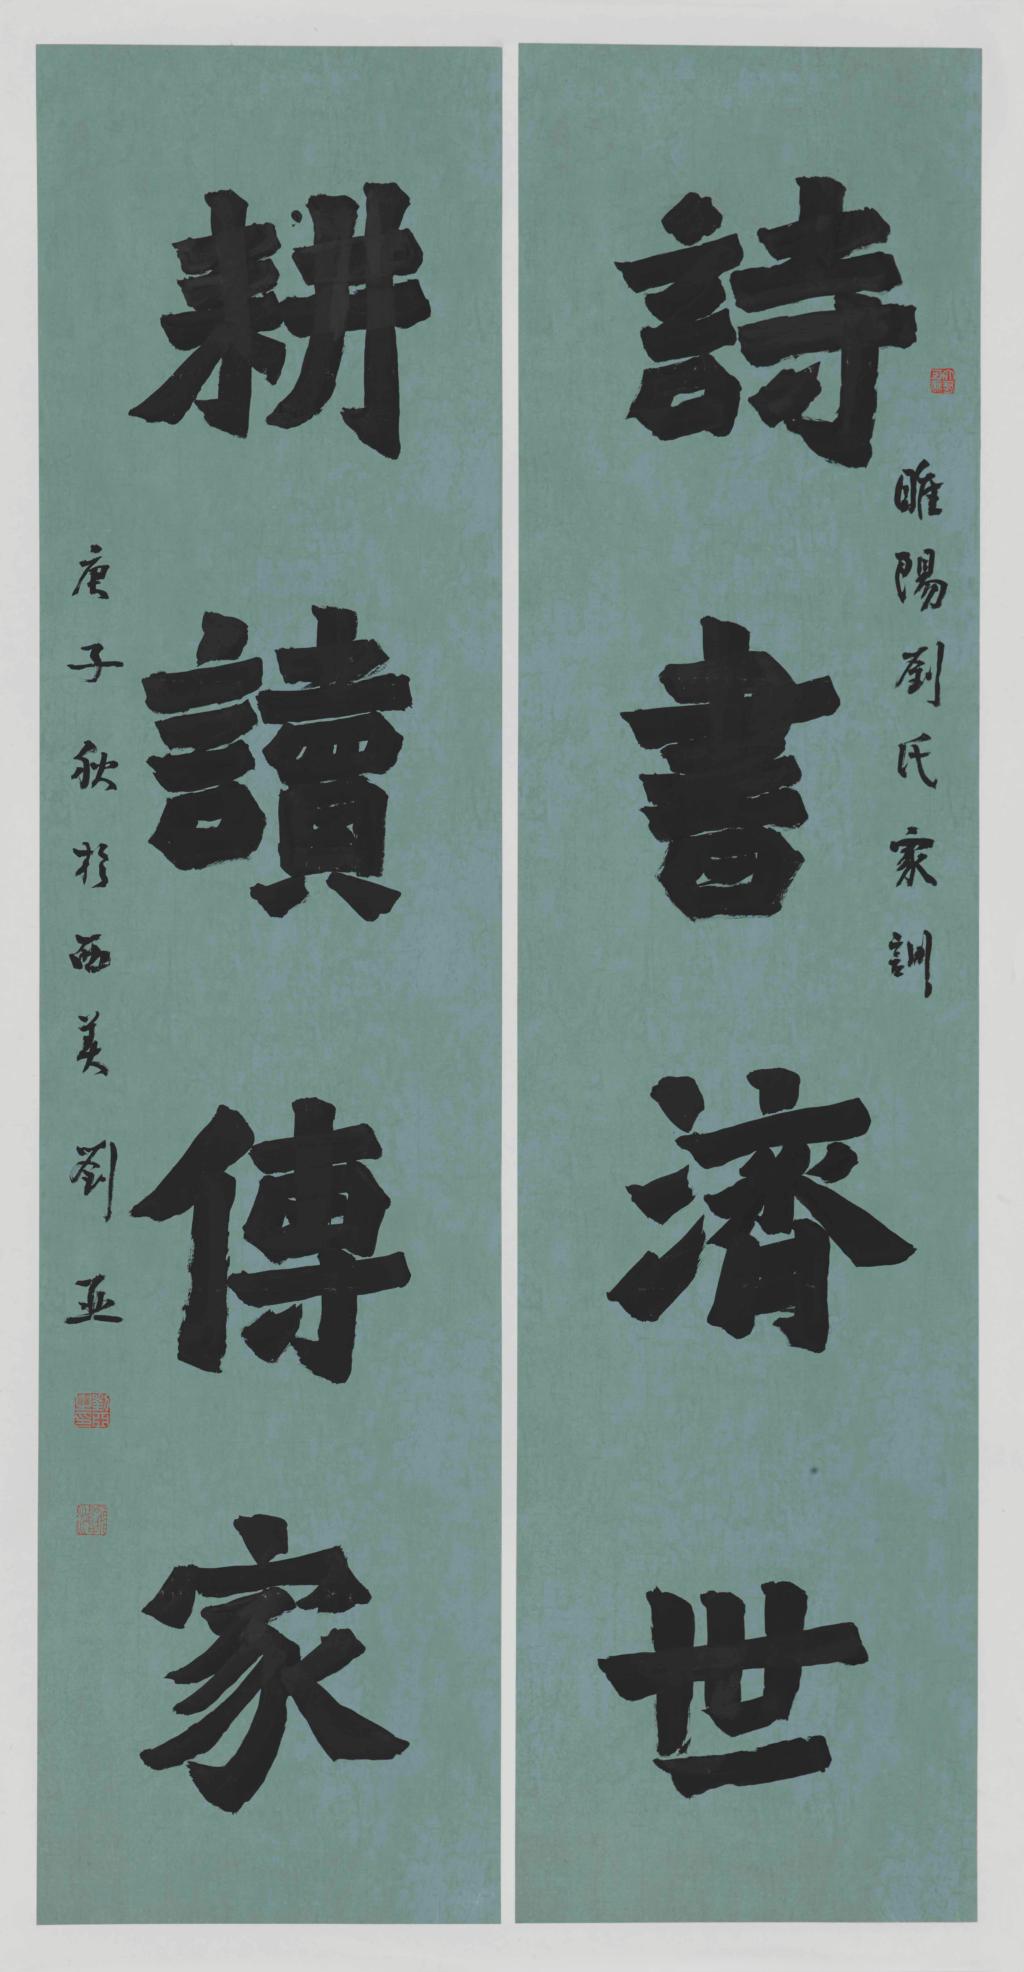 詩書濟世
睢陽劉氏家訓
耕讀傳家
庚子秋於西美劉亚